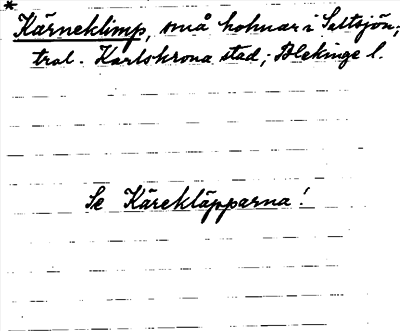 * Kärneklimp, små holmar i Saltsjön;
tral. Karlskrona stad; Blekinge l.
Se Kärekläpparna!